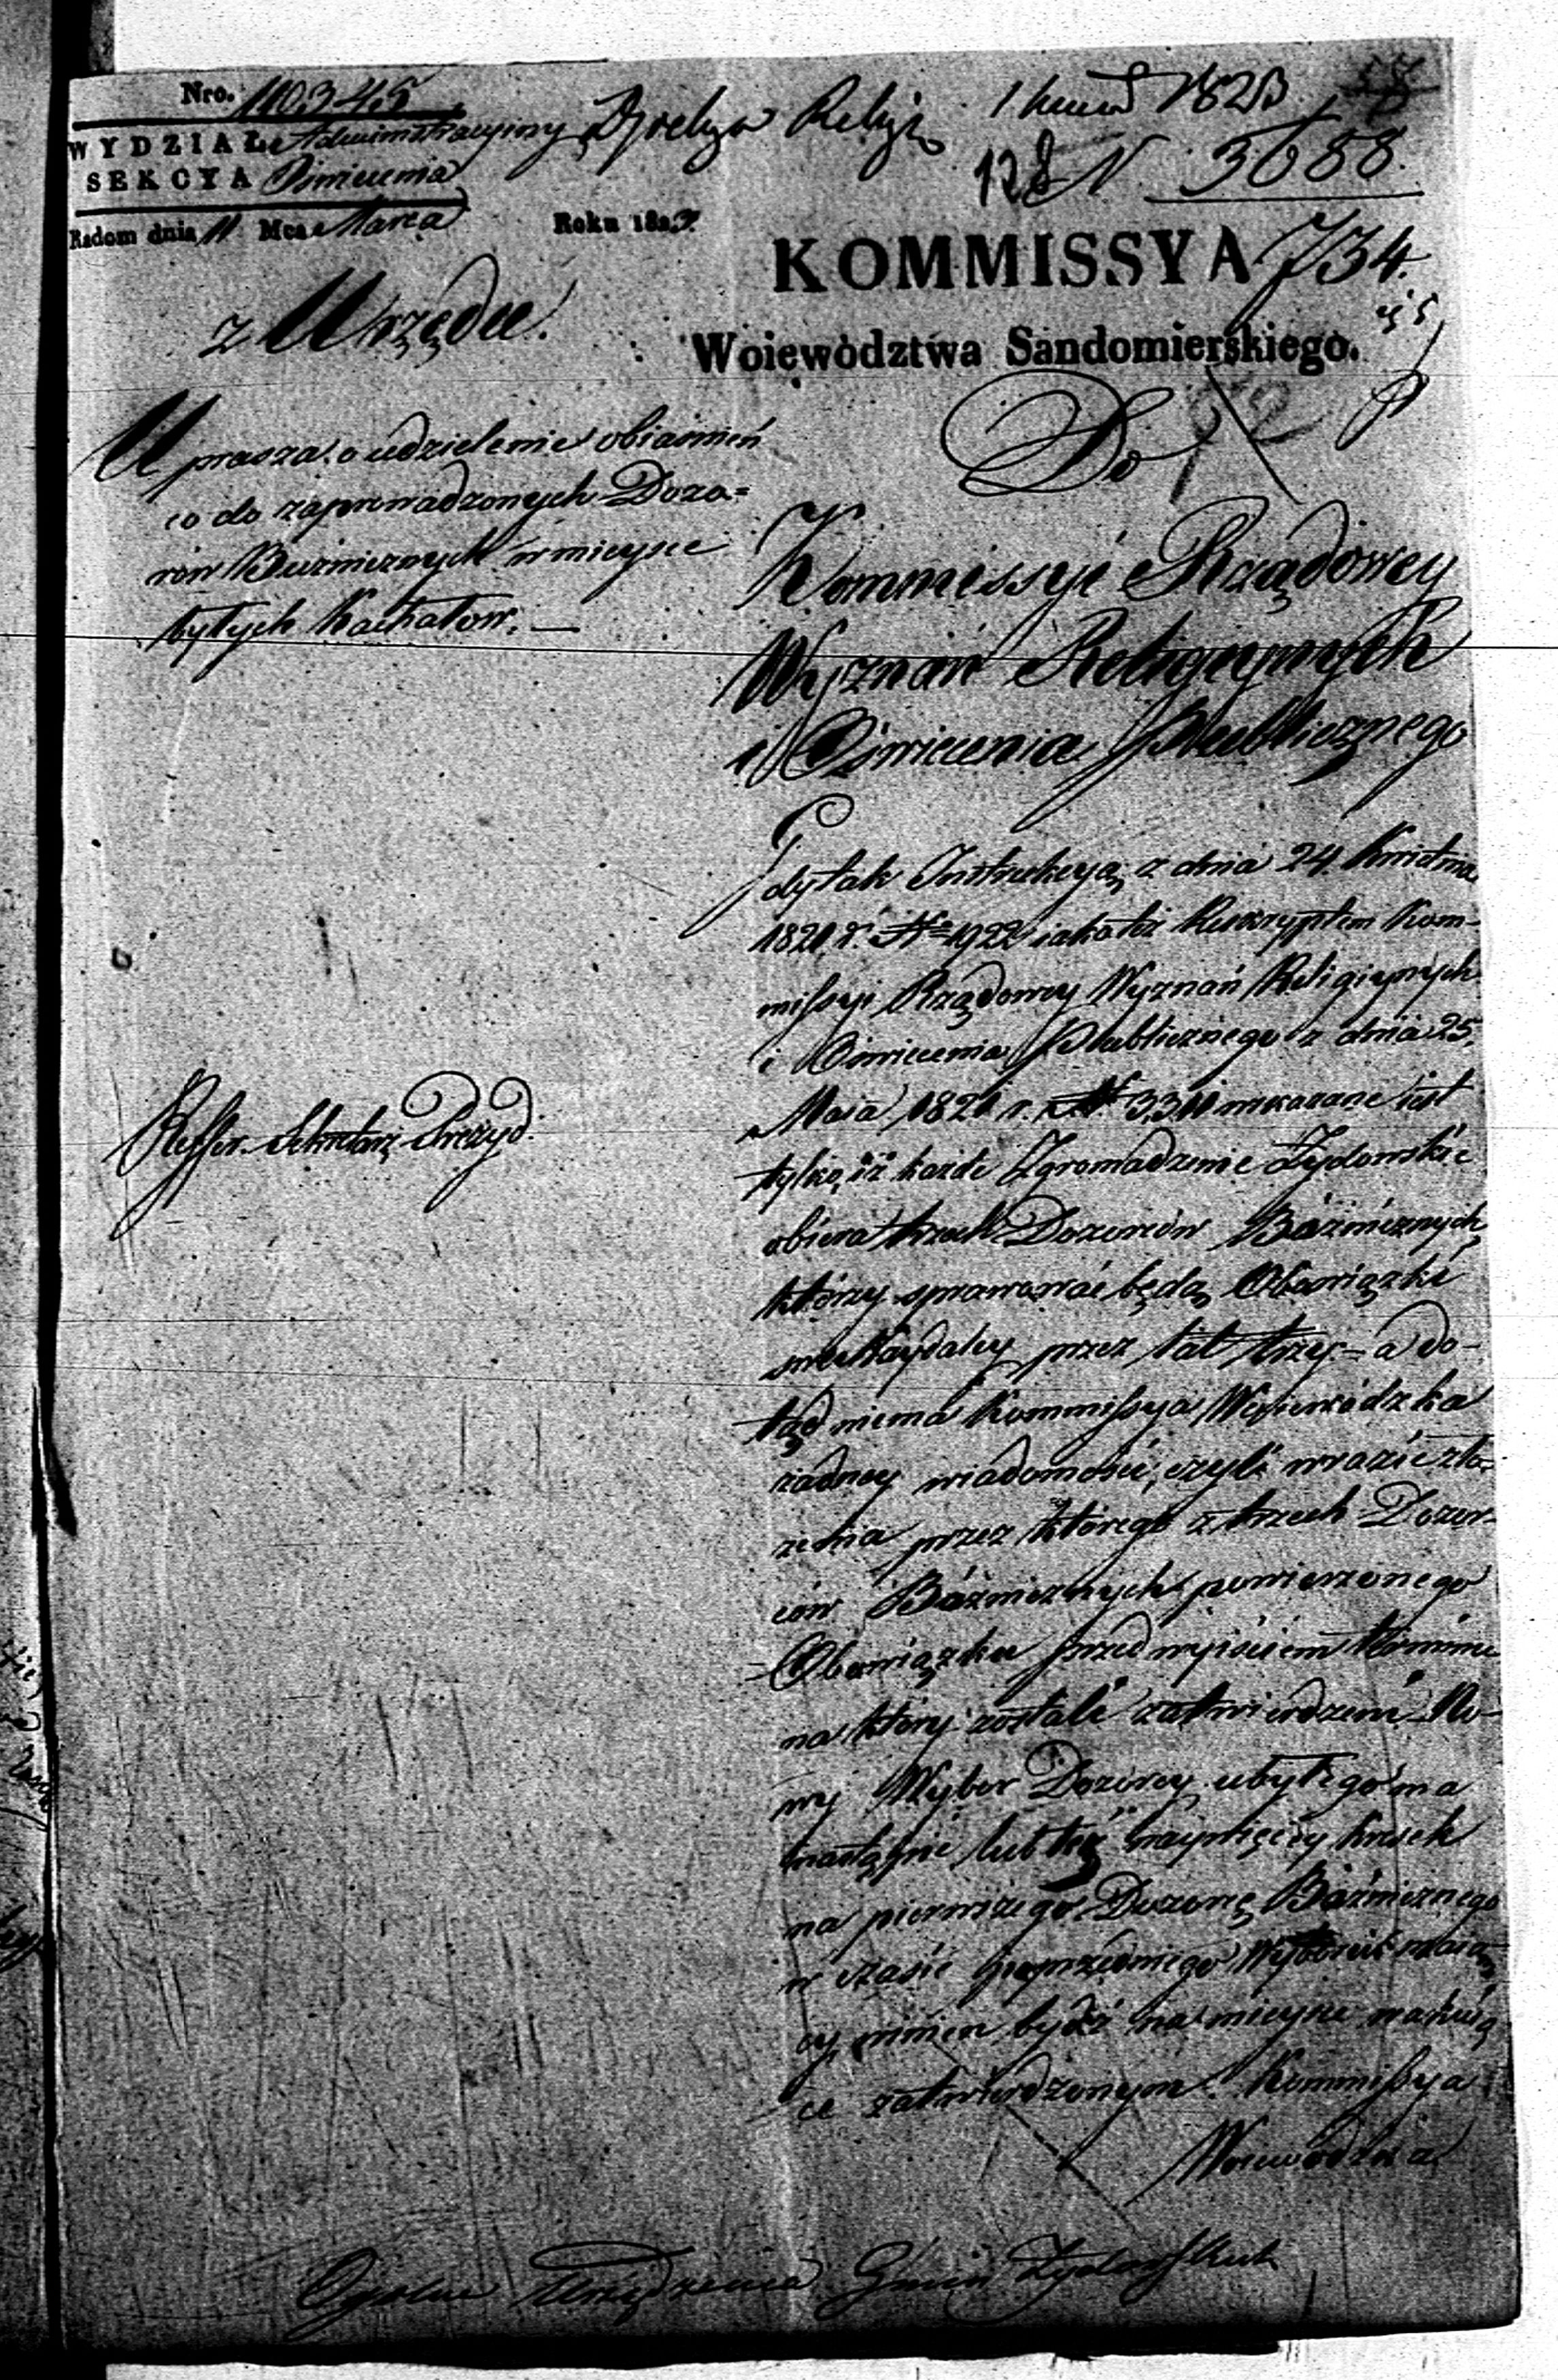 Nro. 110345
WYDZIAŁ Administracyiny
SEKCYA Oświecenia
Radom dnia 11 Mca Marca Roku 1823.
Dyrekcya Religii
1823
128 N. 3688.
734.
KOMMISSYA
Woiewództwa Sandomierskiego.
z Urzędu.
Uprasza o udzielenie obiaśnień
co do zaprowadzonych Dozo=
rów Bużnicznych w mieysce
byłych Kachałow. —
Do
Kommissyi Rządowey
Wyznań Religiynych
i Oświecenia Publicznego
Gdy tak Instrukcyą z dnia 24. Kwietnia
1821 r. No 1922 iako też Reskryptem Kom-
missyi Rządowey Wyznań Religiynych
i Oświecenia Publicznego z dnia 25.
Maia 1821 r. N 3311 wskazane iest
tylko, iż każde Zgromadzenie Żydowskie
obiera trzech Dozorców Bóżnicznych
którzy sprawować będą Obowiązki
swe Naydaley przez lat trzy – a do-
tąd niema Kommissya Woiewódzka
żadney wiadomości, czyli w razie zło-
żenia przez którego z trzech Dozor-
ców Bóżniczych powierzonego
Obowiązku przed wyiściem terminu
na który zostali zatwierdzeni No-
wy Wybor Dozorcy ubyłego ma
nastąpić lub też naywięcey kresek
na pierwszego Dozorcę Bóżnicznego
w czasie poprzedniego Wyboru maią-
cy winien bydź na mieysce
zatwierdzonym. Kommissya
Woiewódzka
Reffer. Sekretarz Prezyd.
Ogolne Urządzenia Gmin Żydowskich